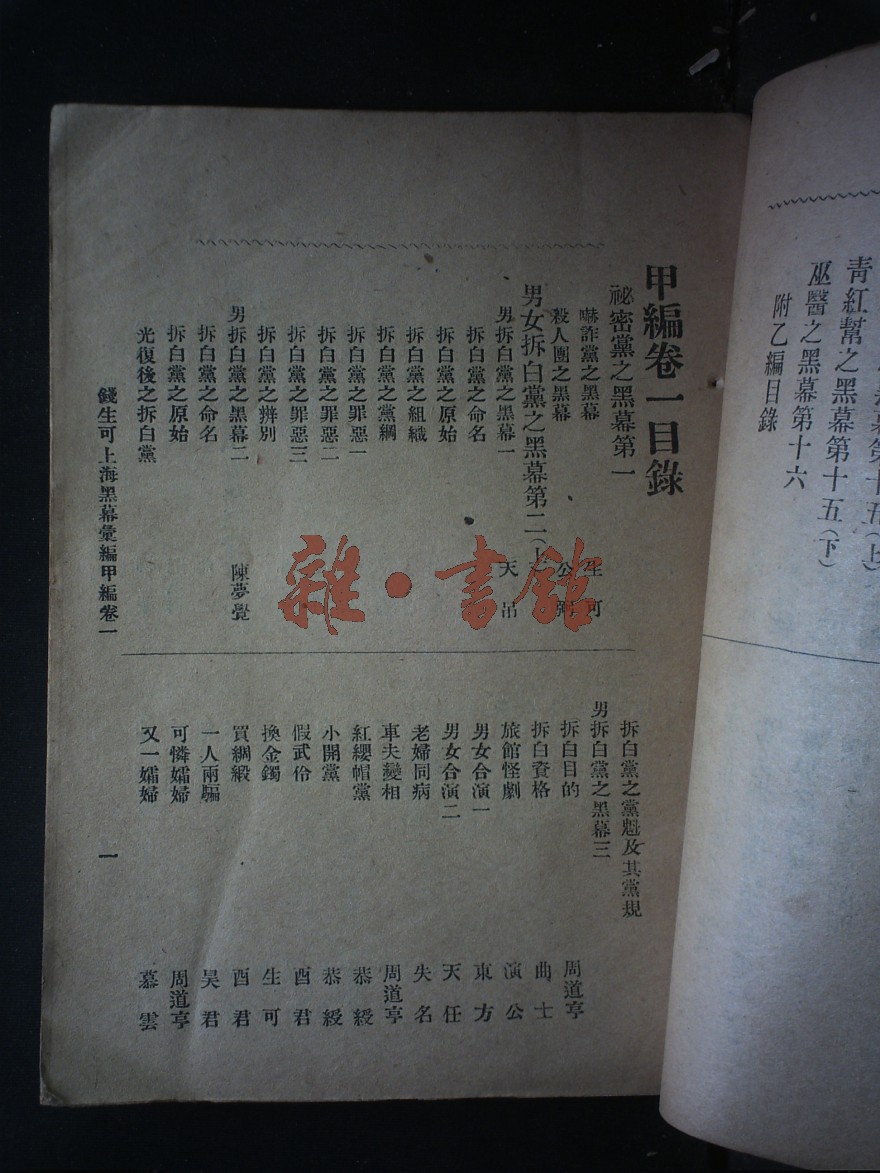 青紅幫之黑幕第十五(下)
巫醫之黑幕第十六
附乙編目錄
甲編卷一目錄
祕密黨之黑幕第一
嚇詐黨之黑幕 生可
殺人團之黑幕
男女拆白黨之黑幕第二(上)
男拆白黨之黑幕一 天吊
拆白黨之命名
拆白黨之原始
拆白黨之組織
拆白黨之黨綱
拆白黨之罪惡一
拆白黨之罪惡二
拆白黨之罪惡三
拆白黨之辨別
男拆白黨之黑幕二 陳夢覺
拆白黨之命名
拆白黨之原始
光復後之拆白黨
拆白黨之黨魁及其黨規
男拆白黨之黑幕三
拆白目的 周道亨
拆白資格 曲士
旅館怪劇 演公
男女合演一 東方
男女合演二 天任
老婦同病 失名
車夫變相 周道亨
紅纓帽黨 恭綬
小開黨 恭綬
假武伶 酉君
換金鐲 生可
買綢緞 酉君
一人兩騙 昊君
可憐孀婦 周道亨
又一孀婦 慕雲
錢生可上海黑幕彙編甲編卷一
一
雜·書館